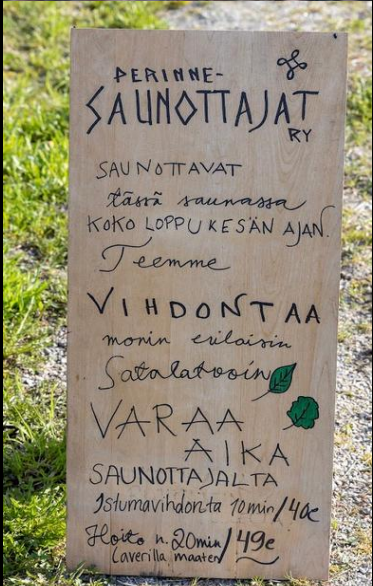 PERINNE-
SAUNOTTAJAT
RY
SAUNOTTAVAT
tässä saunassa
KOKO LOPPUKESÄN AJAN.
Teemme
VIHDONTAA
monin erilaisin
Satalatvoin
VARAA
AIKA
SAUNOTTAJALTA
Istumavihdonta 10min/40€
Hoito n. 20min/49€
Laverilla maaten